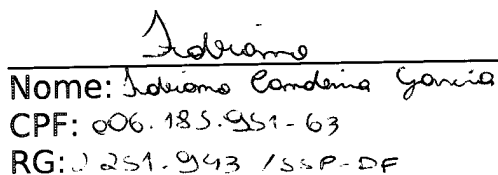 Fabiano
Nome: Fabiano Candeira Garcia
CPF: 006.185.951-63
RG: 2 251.943 /SSP-DF